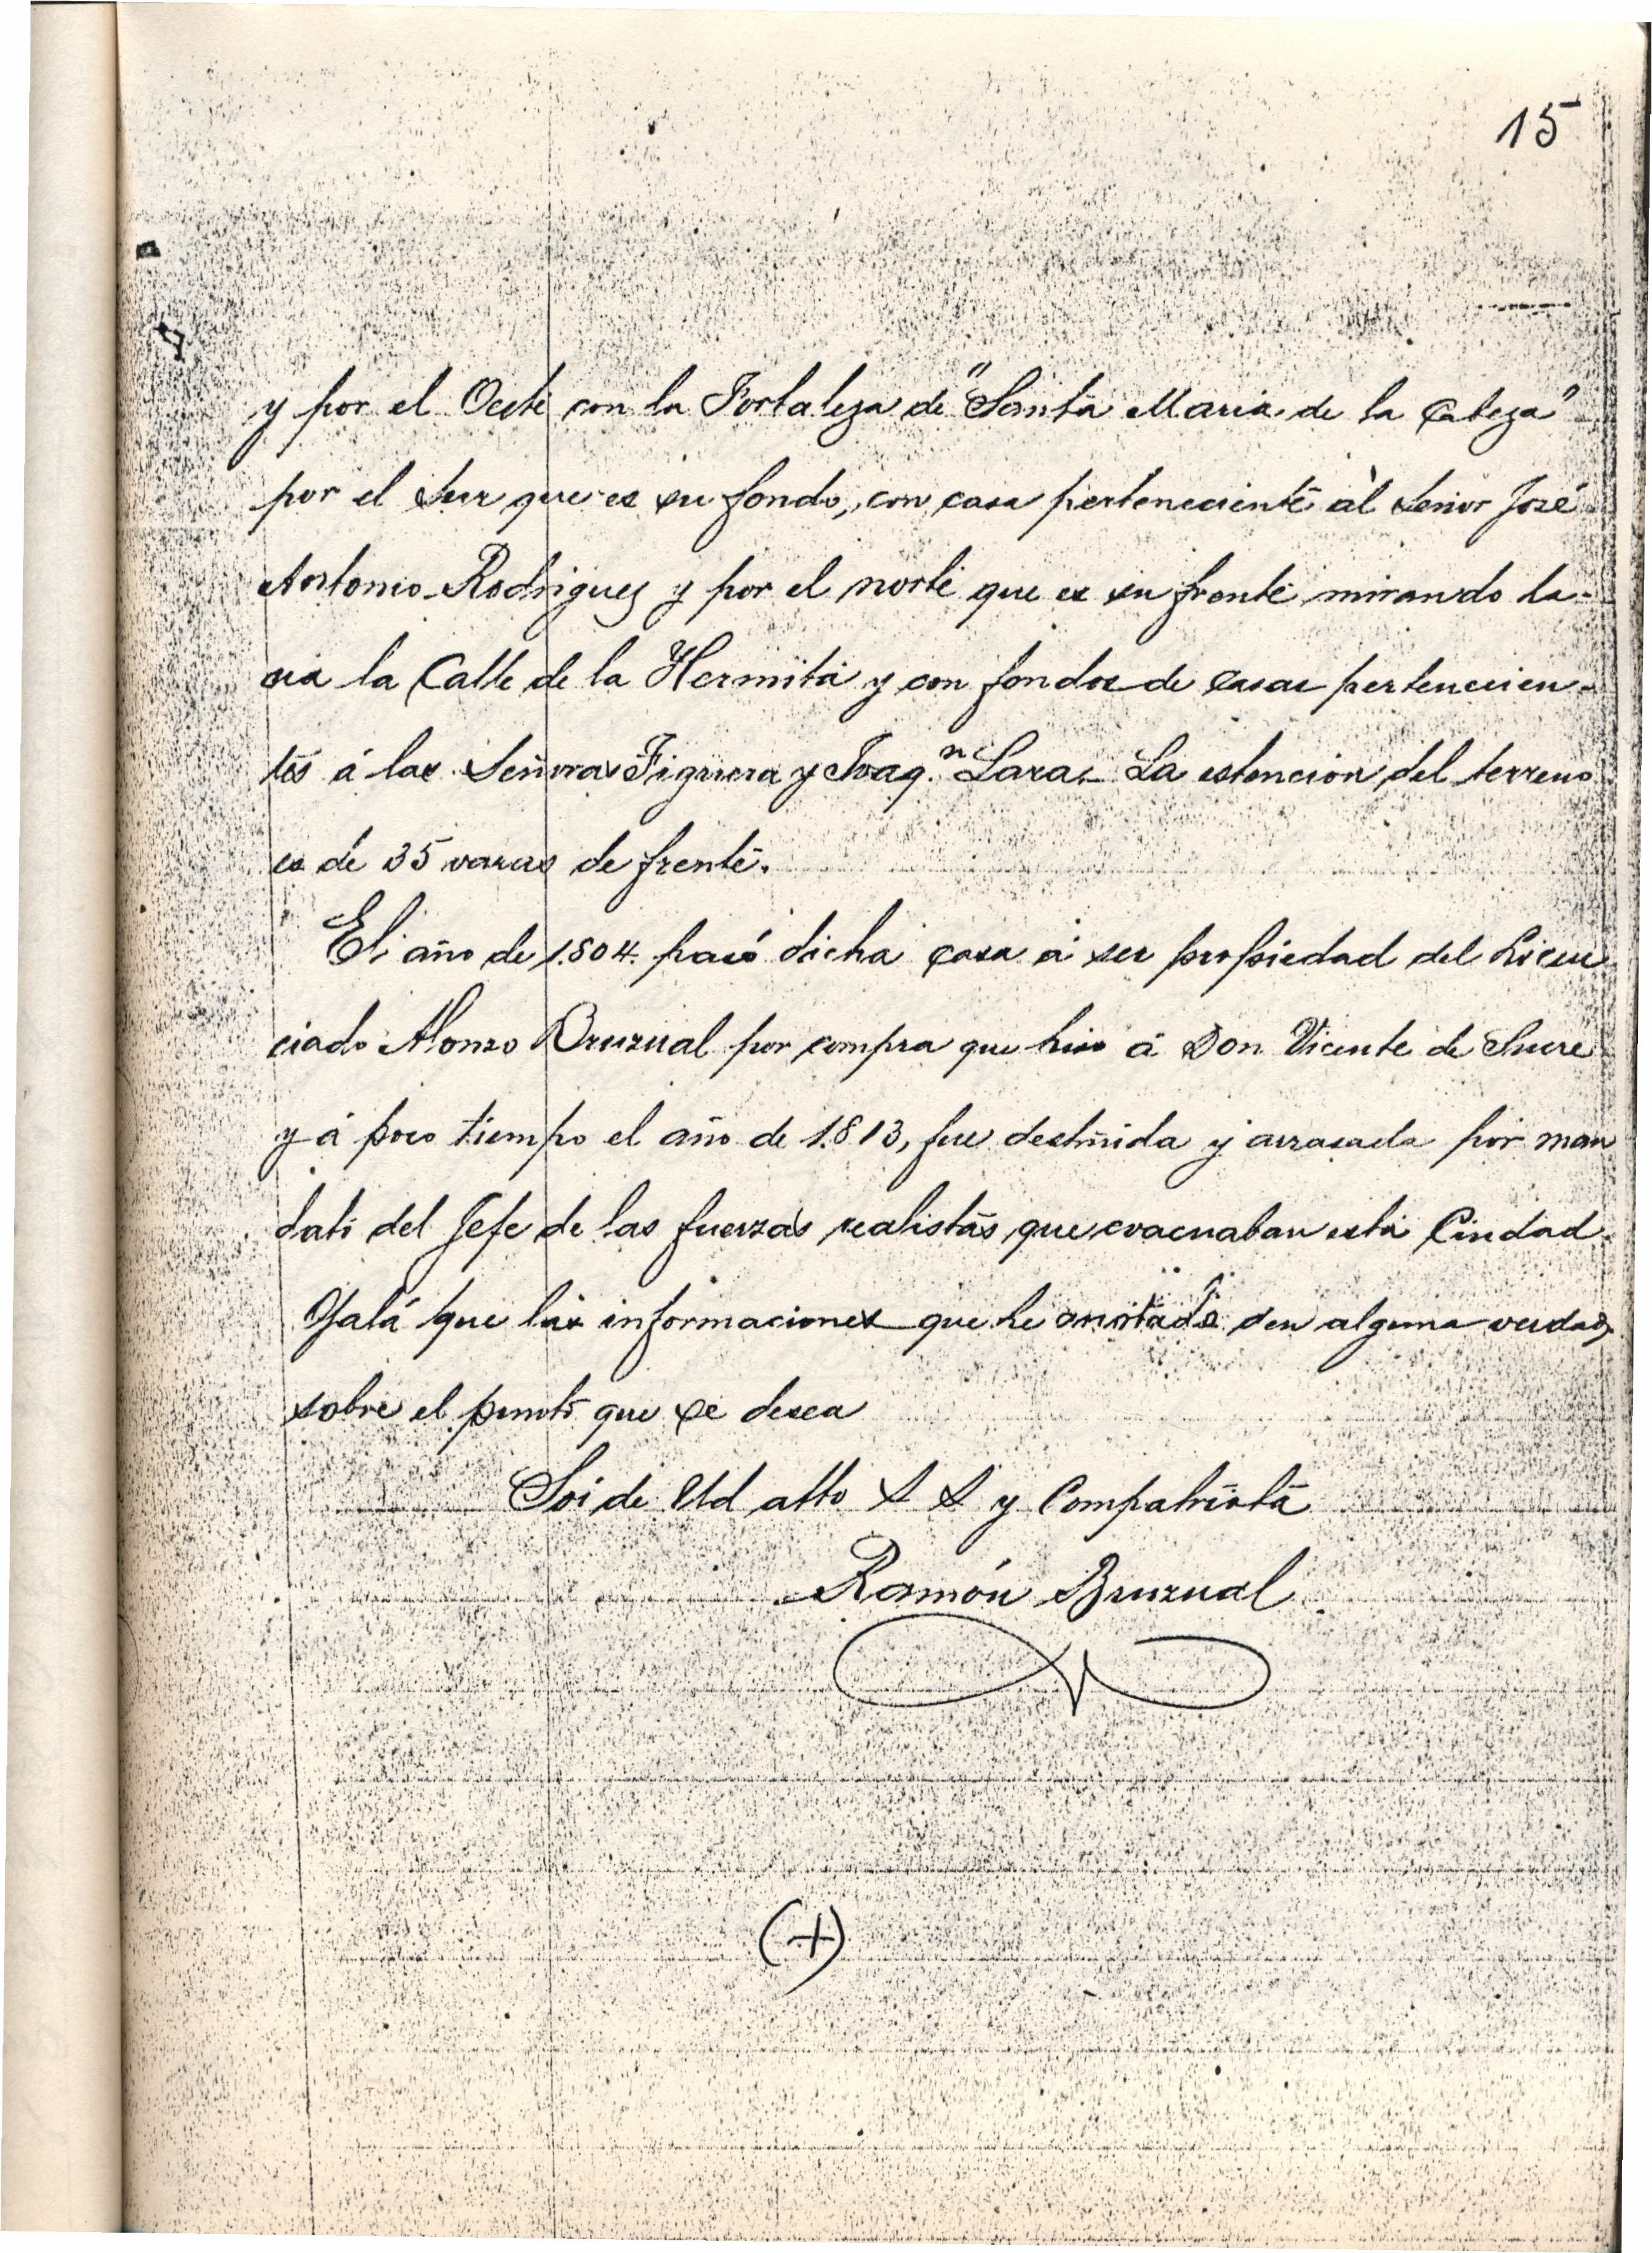 15
y por el Oeste con la Fortaleza de "Santa Maria de la Cabeza"
por el Sur que es su fondo, con casa perteneciente al Señor José
Antonio Rodriguez y por el norte que es su frente mirando ha-
cia la Calle de la Hermita y con fondos de casas pertenecien-
tes á las Señoras Figuera y Joaq.n Lara. La estencion del terreno
es de 35 varas de frente.
El año de 1.804. pasó dicha casa á ser propiedad del Licen
ciado Alonzo Bruzual por compra que hizo á Don Vicente de Sucre
y á poco tiempo el año de 1.813, fue destruida y arrasada por man
dato del Jefe de las fuerzas realistas que evacuaban esta Ciudad.
Ojalá que las informaciones que he anotado den alguna verdad
sobre el punto que se desea
Soi de Ud atto S S y Compatriota
Ramón Bruzual
(+)